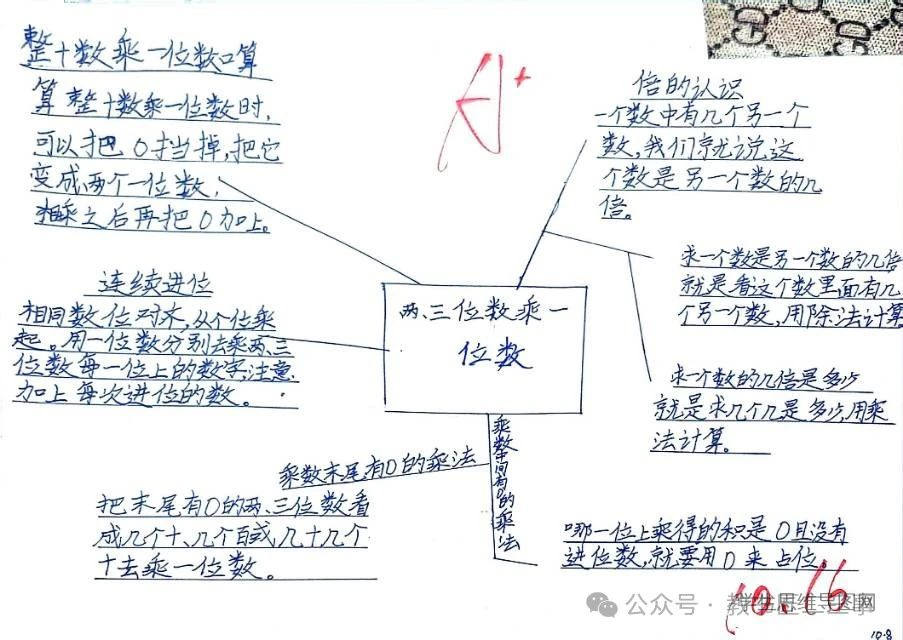 整十数乘一位数口算
算整十数乘一位数时，
可以把0挡掉，把它
变成两个一位数，
相乘之后再把0加上。
A+
倍的认识
一个数中有几个另一个
数，我们就说这
个数是另一个数的几
倍。
求一个数是另一个数的几倍
就是看这个数里面有几
个另一个数，用除法计算
求一个数的几倍是多少
就是求几个几是多少，用乘
法计算。
连续进位
相同数位对齐，从个位乘
起。用一位数分别去乘两、三
位数每一位上的数字，注意
加上每次进位的数。
两、三位数乘一
位数
乘数末尾有0的乘法
把末尾有0的两、三位数看
成几个十、几个百或几十几个
十去乘一位数。
乘数中间有0的乘法
哪一位上乘得的积是0且没有
进位数，就要用0来占位。
10.16
公众号·教
学生思维导图网
10.8